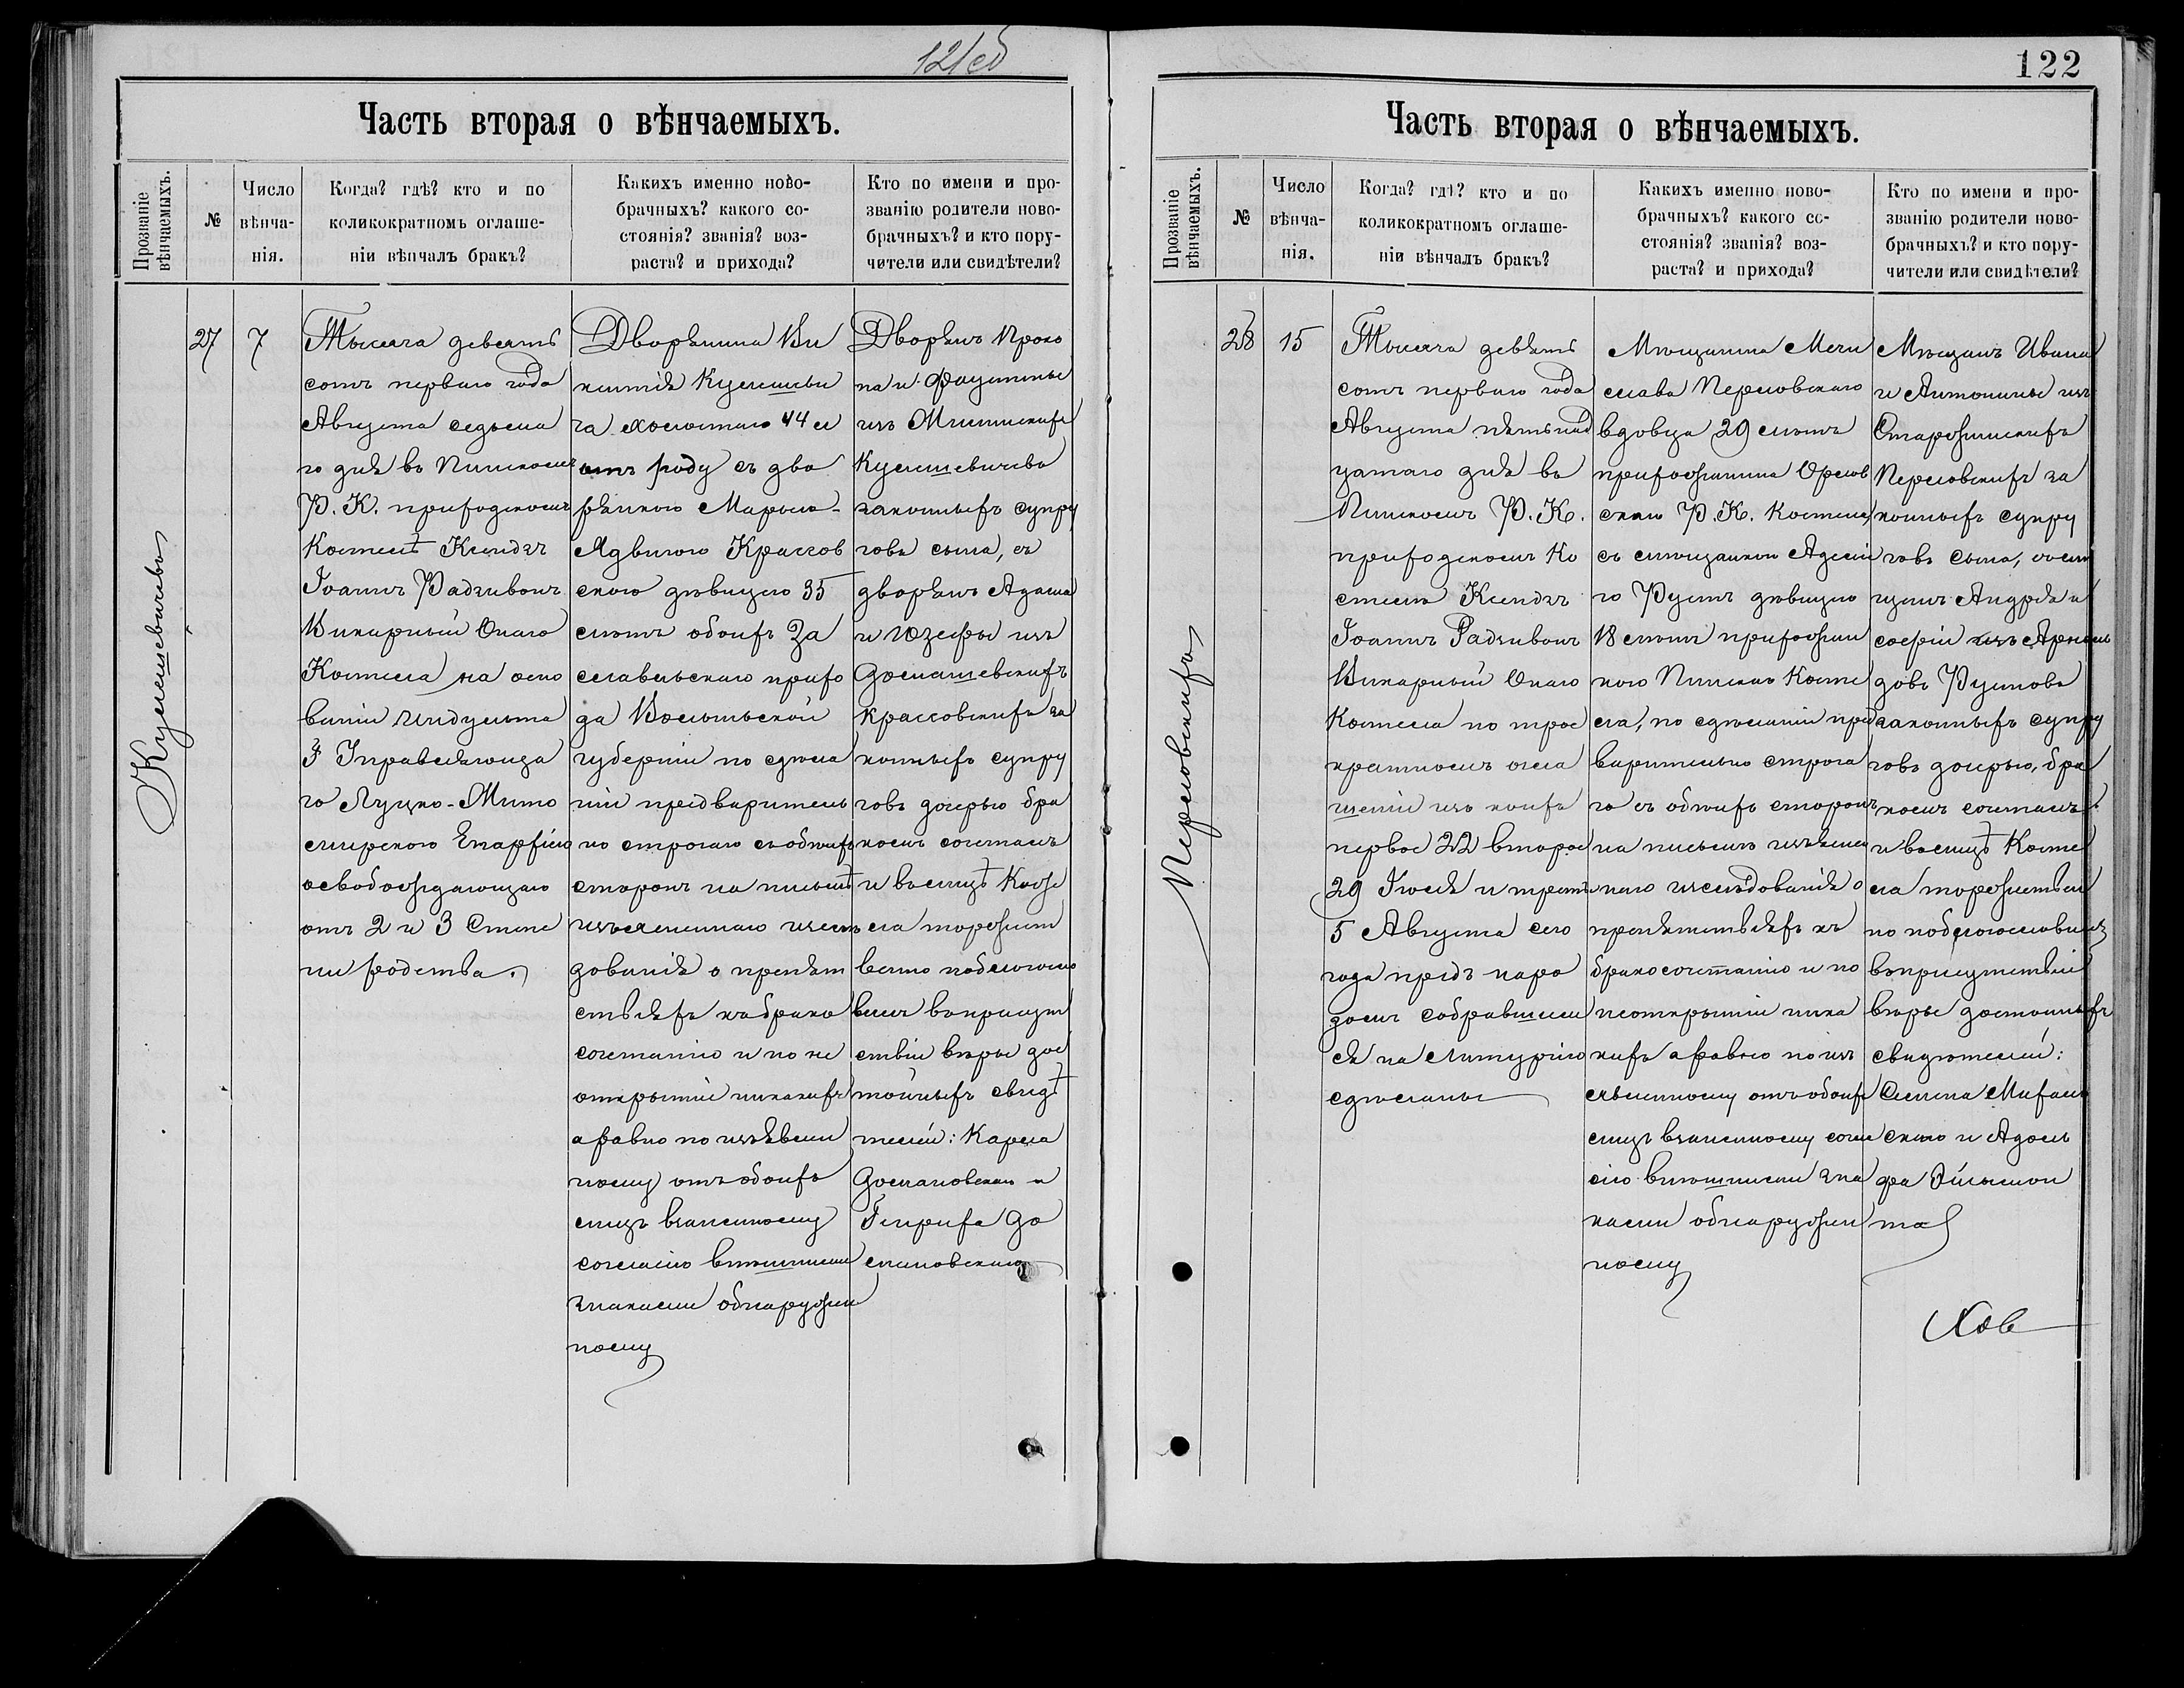 121об
Часть вторая о вѣнчаемыхъ.
Прозваніе
вѣнчаемыхъ.
№
Число
вѣнча-
нія.
Когда? гдѣ? кто и по
коликократномъ оглаше-
ніи вѣнчалъ бракъ?
Какихъ именно ново-
брачныхъ? какого со-
стоянія? званія? воз-
раста? и прихода?
Кто по имени и про-
званію родители ново-
брачныхъ? и кто пору-
чители или свидѣтели?
Кулешевичъ
27
7
Тысяча девять
сотъ перваго года
Августа седьма
го дня въ Пинскомъ
Р. К. приходскомъ
Костелѣ Ксендзъ
Іоаннъ Радзивонъ
Викарный Онаго
Костела на осно
ваніи индульта
Управляюща
го Луцко-Жито
мирскою Епархіею
освобождающаго
отъ 2 и 3 Степе
ни родства.
Дворянина Ви
кентія Кулешеви
ча холостаго 44 л
отъ роду съ дво
рянкою Маріею-
Ядвигою Крассов
скою дѣвицею 35
лѣтъ обоихъ За
славльскаго прихо
да Волынской
губерніи по сдѣла
ніи предваритель
но строгаго собоихъ
сторонъ на письмѣ
изъясненнаго изслѣ
дованія о препят
ствіяхъ къ брако
сочетанію и по не
открытіи никакихъ
а равно по изъявлен
ному отъ обоихъ
лицъ взаимному
согласію внѣшними
знаками обнаружен
ному
Дворянъ Проко
па и Фаустины
изъ
Кулешевичевъ
законныхъ супру
говъ сына, съ
дворянъ Адама
и Юзефы изъ
Домашевскихъ
Крассовскихъ за
конныхъ супру
говъ дочерью бра
комъ сочеталъ
и въ лицѣ Косте
ла торжест
венно поблагосло
вилъ въ присут
ствіи вѣры дос
тойныхъ свидѣ
телей: Карла
и
Генриха До

122
Часть вторая о вѣнчаемыхъ.
Прозваніе
вѣнчаемыхъ.
№
Число
вѣнча-
нія.
Когда? гдѣ? кто и по
коликократномъ оглаше-
ніи вѣнчалъ бракъ?
Какихъ именно ново-
брачныхъ? какого со-
стоянія? званія? воз-
раста? и прихода?
Кто по имени и про-
званію родители ново-
брачныхъ? и кто пору-
чители или свидѣтели?
Перловскихъ
28
15
Тысяча девять
сотъ перваго года
Августа пятьнад
цатаго дня въ
Пинскомъ Р. К.
приходскомъ Ко
стелѣ Ксендзъ
Іоаннъ Радзивонъ
Викарный Онаго
Костела по трое
кратномъ огла
шеніи изъ коихъ
первое 22 второе
29 Іюля и третье
5 Августа сего
года предъ наро
домъ собравшим
ся на литургію
сдѣланы
Мѣщанина Мечи
слава Перловскаго
вдовца 29 лѣтъ
прихожанина Орлов
скаго Р. К. Костела,
съ мѣщанкою Аделіе
ю Румъ дѣвицею
18 лѣтъ прихожан
кою Пинскаго Косте
ла, по сдѣланіи пред
варительно строга
го съ обоихъ сторонъ
на письмѣ изъяснен
наго изслѣдованія о
препятствіяхъ къ
бракосочетанію и по
неоткрытіи ника
кихъ а равно по изъ
явленному отъ обоихъ
лицъ взаимному согла
сію внѣшними зна
ками обнаружен
ному
Мѣщанъ Ивана
и Антонины изъ
Перловскихъ за
конныхъ супру
говъ сына, съ мѣ
щанъ Андрея и
Софіи изъ
довъ Румовъ
законныхъ супру
говъ дочерью, бра
комъ сочеталъ
и въ лицѣ Косте
ла торжествен
но поблагословилъ
въ присутствіи
вѣры достойныхъ
свидѣтелей:
скаго и Адоль
фа
та